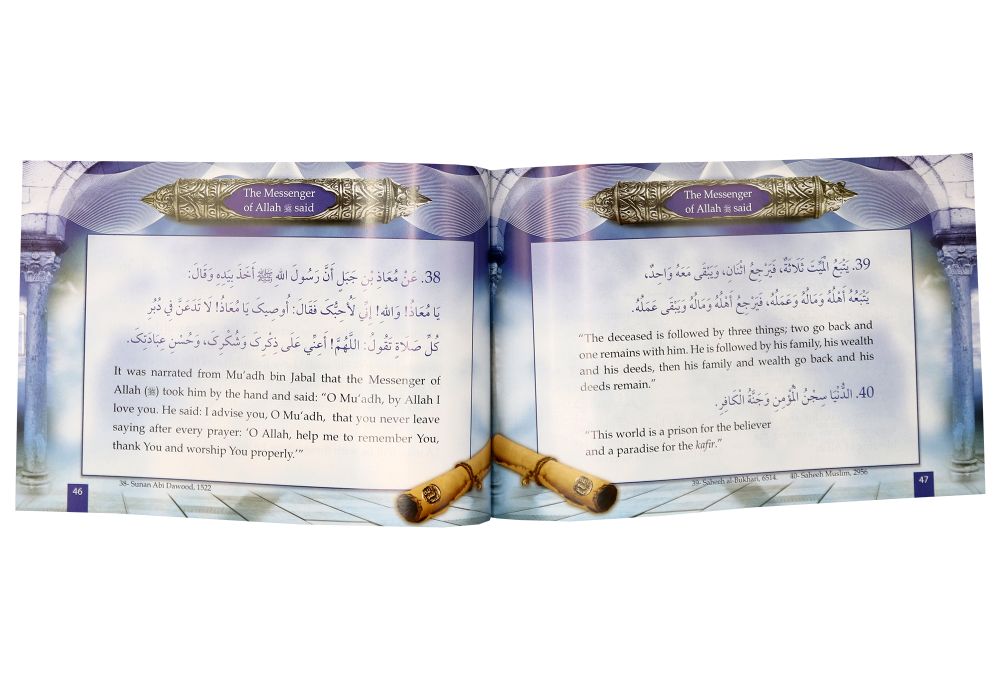 The Messenger
of Allah ﷺ said
38. عَنْ مُعَاذِ بْنِ جَبَلٍ أَنَّ رَسُولَ الله ﷺ أَخَذَ بِيَدِهِ وَقَالَ:
يَا مُعَاذُ! وَالله! إِنِّي لَأُحِبُّكَ فَقَالَ: أُوصِيكَ يَا مُعَاذُ! لَا تَدَعَنَّ فِي دُبُرِ
كُلِّ صَلَاةٍ تَقُولُ: اللَّهُمَّ! أَعِنِّي عَلَى ذِكْرِكَ وَشُكْرِكَ، وَحُسْنِ عِبَادَتِكَ.
It was narrated from Mu’adh bin Jabal that the Messenger of
Allah (ﷺ) took him by the hand and said: “O Mu’adh, by Allah I
love you. He said: I advise you, O Mu’adh, that you never leave
saying after every prayer: ‘O Allah, help me to remember You,
thank You and worship You properly.’”
38- Sunan Abi Dawood, 1522
46
The Messenger
of Allah ﷺ said
39. يَتْبَعُ الْمَيِّتَ ثَلَاثَةٌ، فَيَرْجِعُ اثْنَانِ، وَيَبْقَى مَعَهُ وَاحِدٌ،
يَتْبَعُهُ أَهْلُهُ وَمَالُهُ وَعَمَلُهُ، فَيَرْجِعُ أَهْلُهُ وَمَالُهُ وَيَبْقَى عَمَلُهُ.
“The deceased is followed by three things; two go back and
one remains with him. He is followed by his family, his wealth
and his deeds, then his family and wealth go back and his
deeds remain.”
40. الدُّنْيَا سِجْنُ الْمُؤْمِنِ وَجَنَّةُ الْكَافِرِ.
“This world is a prison for the believer
and a paradise for the kafir.”
39- Saheeh al-Bukhari, 6514. 40- Saheeh Muslim, 2956
47